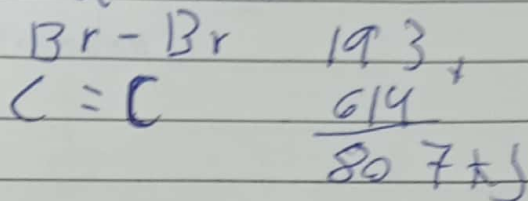 Br - Br 193 +
C = C 614
807 kJ